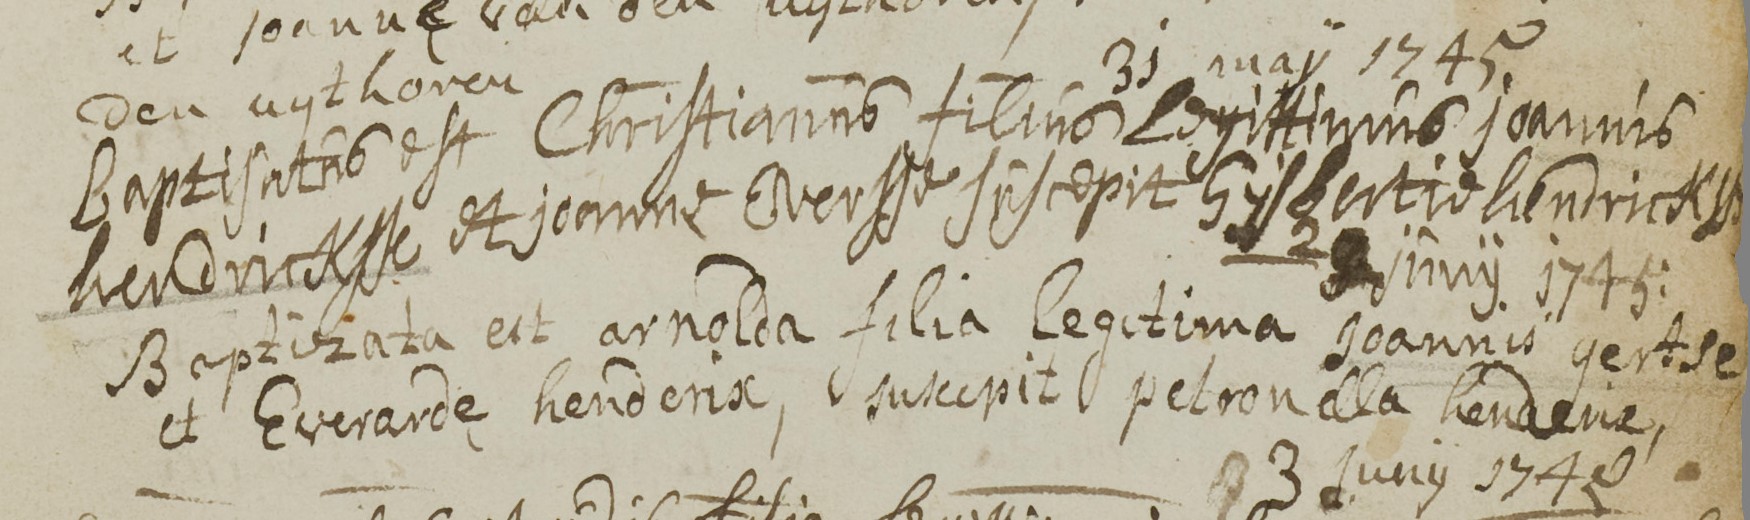 et Joannę van den uythoren,
den uythoren
31 maij 1745
Baptisatus est Christianus filius Legittimus joannis
hendricksse et joanne Everssse suscepit Gijsbertie hendricksse
2 junij 1745:
Baptizata est arnolda filia legitima Joannis gertse
et Everardę henderix, suscepit petronella henderix,
3 Junij 1745
filia